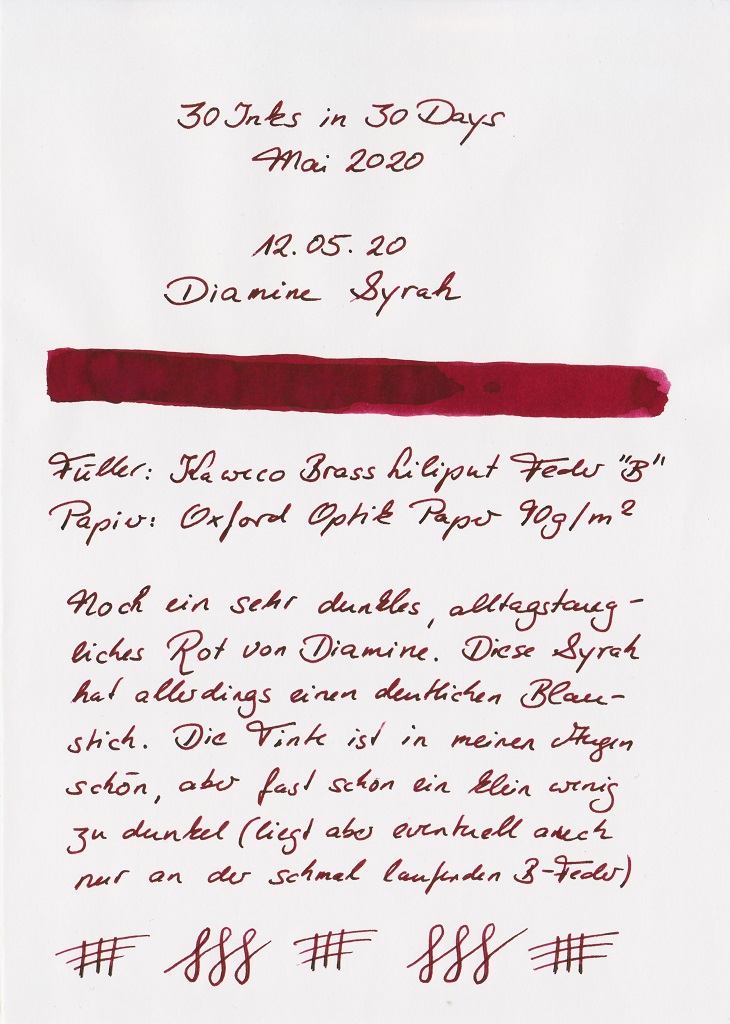 30 Inks in 30 Days
Mai 2020
12.05.20
Diamine Syrah
Füller: Kaweco Brass Liliput Feder "B"
Papier: Oxford Optik Paper 90g/m²
Noch ein sehr dunkles, alltagstaug-
liches Rot von Diamine. Diese Syrah
hat allerdings einen deutlichen Blau-
stich. Die Tinte ist in meinen Augen
schön, aber fast schon ein klein wenig
zu dunkel (liegt aber eventuell auch
nur an der schmal laufenden B-Feder)